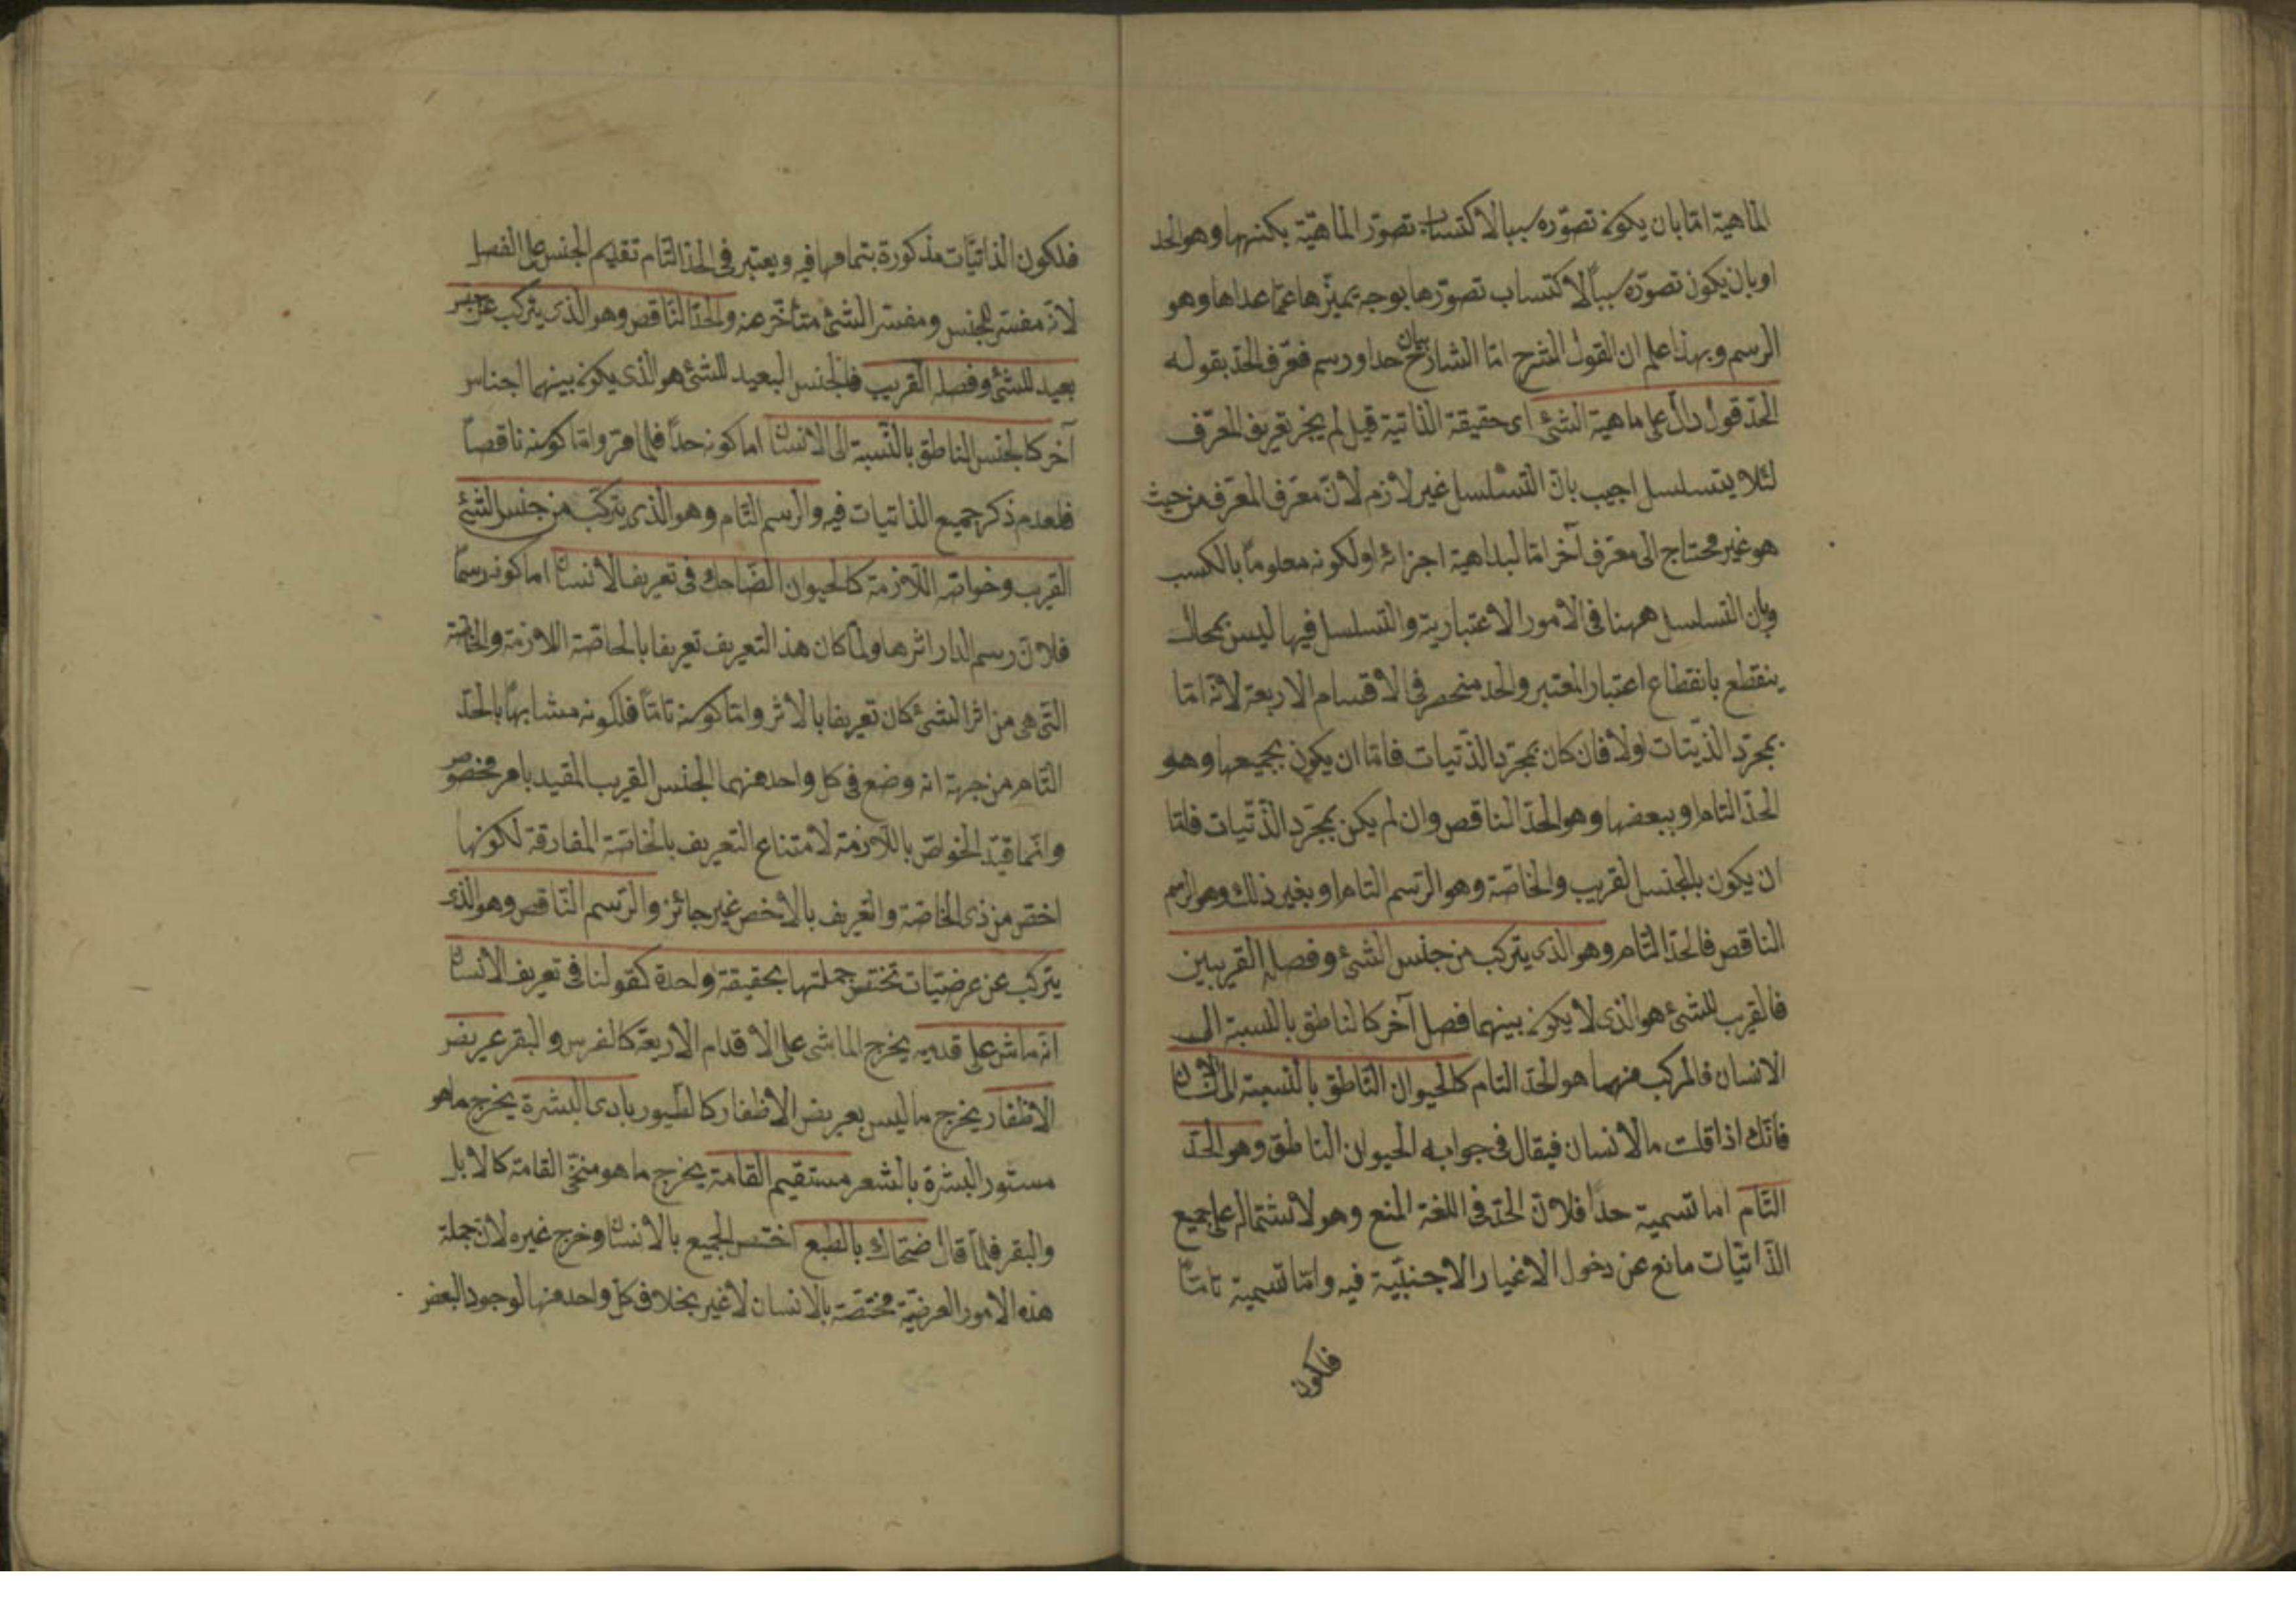 الماهية امّا بان يكون تصوّره سببا لاكتساب تصوّر الماهيّة بكنهها وهو الحد
او بان يكون تصوّره سبباً لاكتساب تصوّرها بوجه يميّزها عمّا عداها وهو
الرسم وبهذا علم ان القول الشرح امّا الشارح حدا ورسم فعرّف الحدّ بقوله
بيان
الحدّ قول دالّ على ماهية الشئ اى حقيقة الذاتية قيل لم يجز تعريف المعرّف
لئلا يتسلسل اجيب بانّ التسلسل غير لازم لانّ معرّف المعرّف من حيث
هو غير محتاج الى معرّف آخر امّا لبداهية اجزائه او لكونه معلوماً بالكسب
وبان التسلسل ههنا فى الامور الاعتبارية والتسلسل فيها ليس بمحال
ينقطع بانقطاع اعتبار المعتبر والحد منحصر فى الاقسام الاربعة لانّه امّا
بمجرّد الذّيتات او لا فان كان بمجرّد بالذّتيات فامّا ان يكون بجميعها وهو
الحدّ التام او ببعضها وهو الحدّ الناقص وان لم يكن بمجرّد الذّتّيات فامّا
ان يكون بالجنس القريب والخاصّة وهو الرّسم التام او بغير ذلك وهو الرسم
الناقص فالحدّ التّام وهو الذى يتركب من جنس الشئ وفصله القريبين
فالقريب للشئ هو الذى لا يكون بينهما فصل آخر كالناطق بالنسبة الى
الانسان فالمركب منهما هو الحدّ التام كالحيوان النّاطق بالنّسبة الى الانسان
فانّك اذا قلت ما الانسان فيقال فى جوابه الحيوان الناطق وهو الحدّ
التّام اما تسمية حدّا فلانّ الحدّ فى اللغة المنع وهو لاشتماله على جميع
الذّاتيّات مانع عن دخول الاغيار الاجنبيّة فيه وامّا تسمية تامّاً
فلكون
فلكون الذاتيّات مذكورة بتمامها فيه ويعتبر فى الحدّ التّام تقديم الجنس على الفصل
لانّه مفسّر للجنس ومفسّر الشئ متأخّر عنه والحدّ النّاقص وهو الذى يتركب عن جنس
بعيد للشئ وفصله القريب فالجنس البعيد للشئ هو الذى يكون بينهما اجناس
آخر كالجنس الناطق بالنّسبة الى الانسان اما كونه حدّاً فلما مرّ وامّا كونه ناقصاً
فلعدم ذكر جميع الذاتيات فيه والرسم التّام وهو الذى يتركّب من جنس الشئ
القريب وخواصّه اللّازمة كالحيوان الضّاحك فى تعريف الانسان اما كونه رسمًا
فلانّ رسم الدار اثرها ولمّا كان هذ التعريف تعريفا بالخاصّة اللازمة والخاصّة
التّى هى من اثر الشئ كان تعريفا بالاثر وامّا كونه تامّاً فلكونه مشابهًا بالحدّ
التّام من جهة انه وضع فى كل واحد منهما الجنس القريب المقيد بامر مخصوص
وانّما قيّد الخواصّ باللّازمة لامتناع التعريف بالخاصّة المفارقة لكونها
اخصّ من ذى الخاصّة والتعريف بالاخص غير جائز والرّسم النّاقص وهو الذى
يتركب عن عرضيّات تختصّ جملتها بحقيقة واحدة كقولنا فى تعريف الانسان
انّه ماش على قدميه يخرج الماشى على الاقدام الاربعة كالفرس والبقر عريض
الاظفار يخرج ما ليس بعريض الاظفار كالطيور بادى البشرة يخرج ما هو
مستور البشرة بالشعر مستقيم القامة يخرج ما هو منحنى القامة كالابل
والبقر فلمّا قال ضحّاك بالطبع اختصّ الجميع بالانسان وخرج غيره لانّ جملة
هذه الامور العرضيّة مختصّة بالانسان لا غير بخلاف كلّ واحد منها لوجود البعض